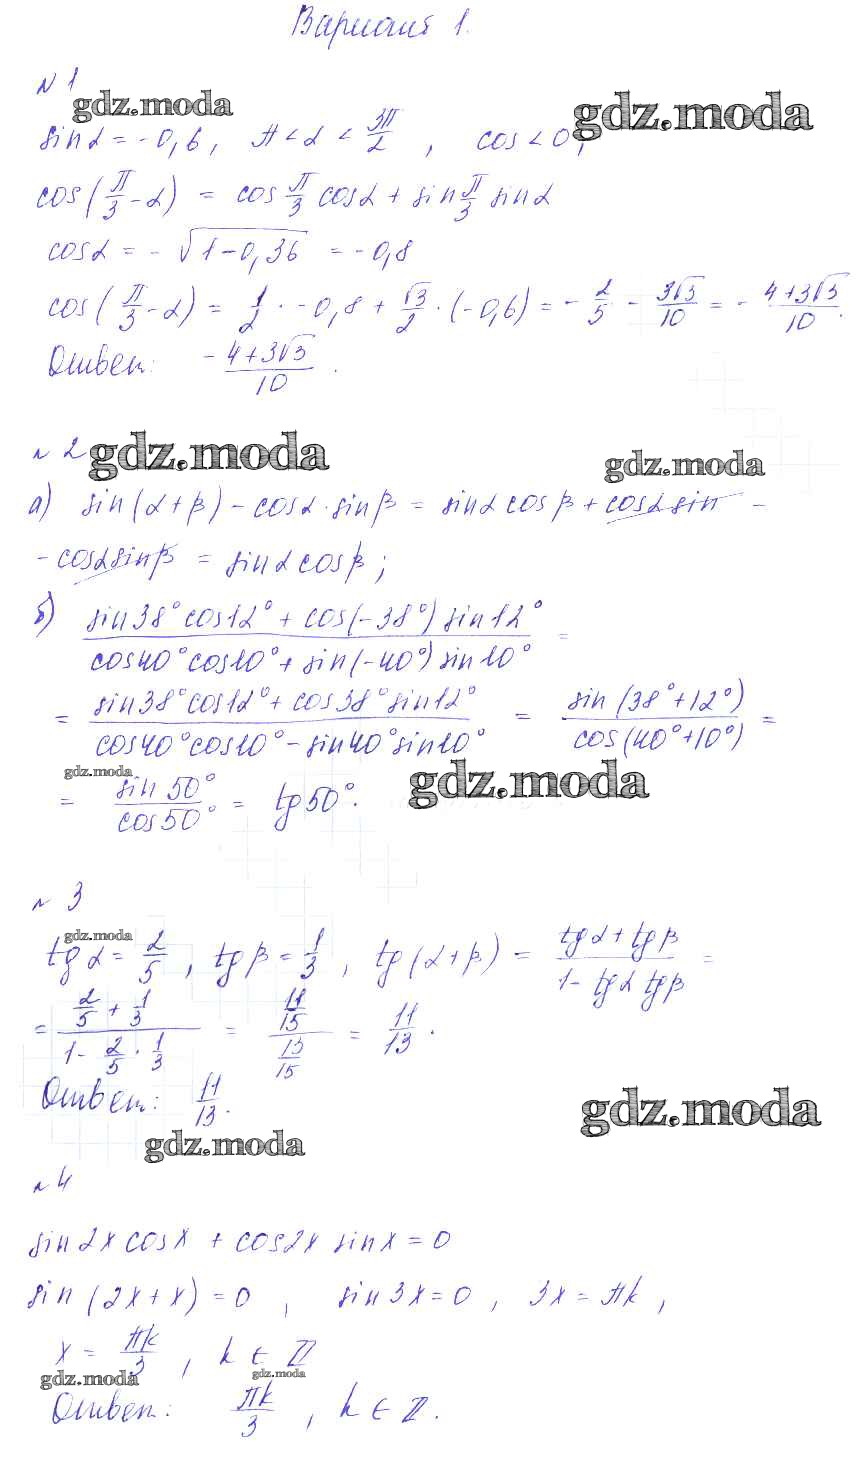 Вариант 1.
№1
gdz.moda
gdz.moda
sinα = -0,6, π < α < 3π/2, cos < 0,
cos(π/3 - α) = cos π/3 cosα + sin π/3 sinα
cosα = -√(1-0,36) = -0,8
cos(π/3 - α) = 1/2 · -0,8 + √3/2 · (-0,6) = - 2/5 - 3√3/10 = - (4+3√3)/10.
Ответ: - (4+3√3)/10.
№2
gdz.moda
gdz.moda
а) sin(α+β) - cosα·sinβ = sinα cosβ + cosα sin -
- cosα sinβ = sinα cosβ;
б) (sin38° cos12° + cos(-38°) sin12°)/(cos40° cos10° + sin(-40°) sin10°) =
= (sin38° cos12° + cos38° sin12°)/(cos40° cos10° - sin40° sin10°) = sin(38°+12°)/cos(40°+10°) =
gdz.moda
gdz.moda
= sin50°/cos50° = tg50°.
№3
gdz.moda
tgα = 2/5, tgβ = 1/3, tg(α+β) = (tgα + tgβ)/(1 - tgα tgβ) =
= (2/5 + 1/3)/(1 - 2/5 · 1/3) = (11/15)/(13/15) = 11/13.
Ответ: 11/13.
gdz.moda
gdz.moda
№4
sin2x cosx + cos2x sinx = 0
sin(2x+x) = 0, sin3x = 0, 3x = πk,
x = πk/3, k ∈ Z
gdz.moda
gdz.moda
Ответ: πk/3, k ∈ Z.